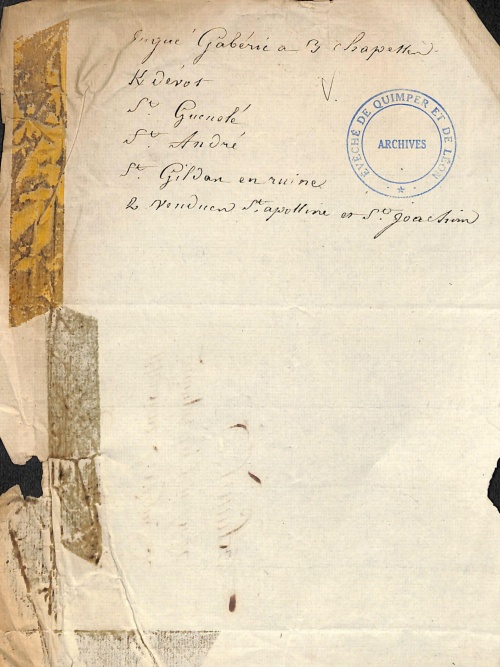 Ergué Gabéric a 3 chapelles
K dévot
V.
St. Guenolé
St. André
St. Gildas en ruine
2 vendues St. apolline et St. joachim
EVÊCHÉ DE QUIMPER ET DE LÉON
ARCHIVES